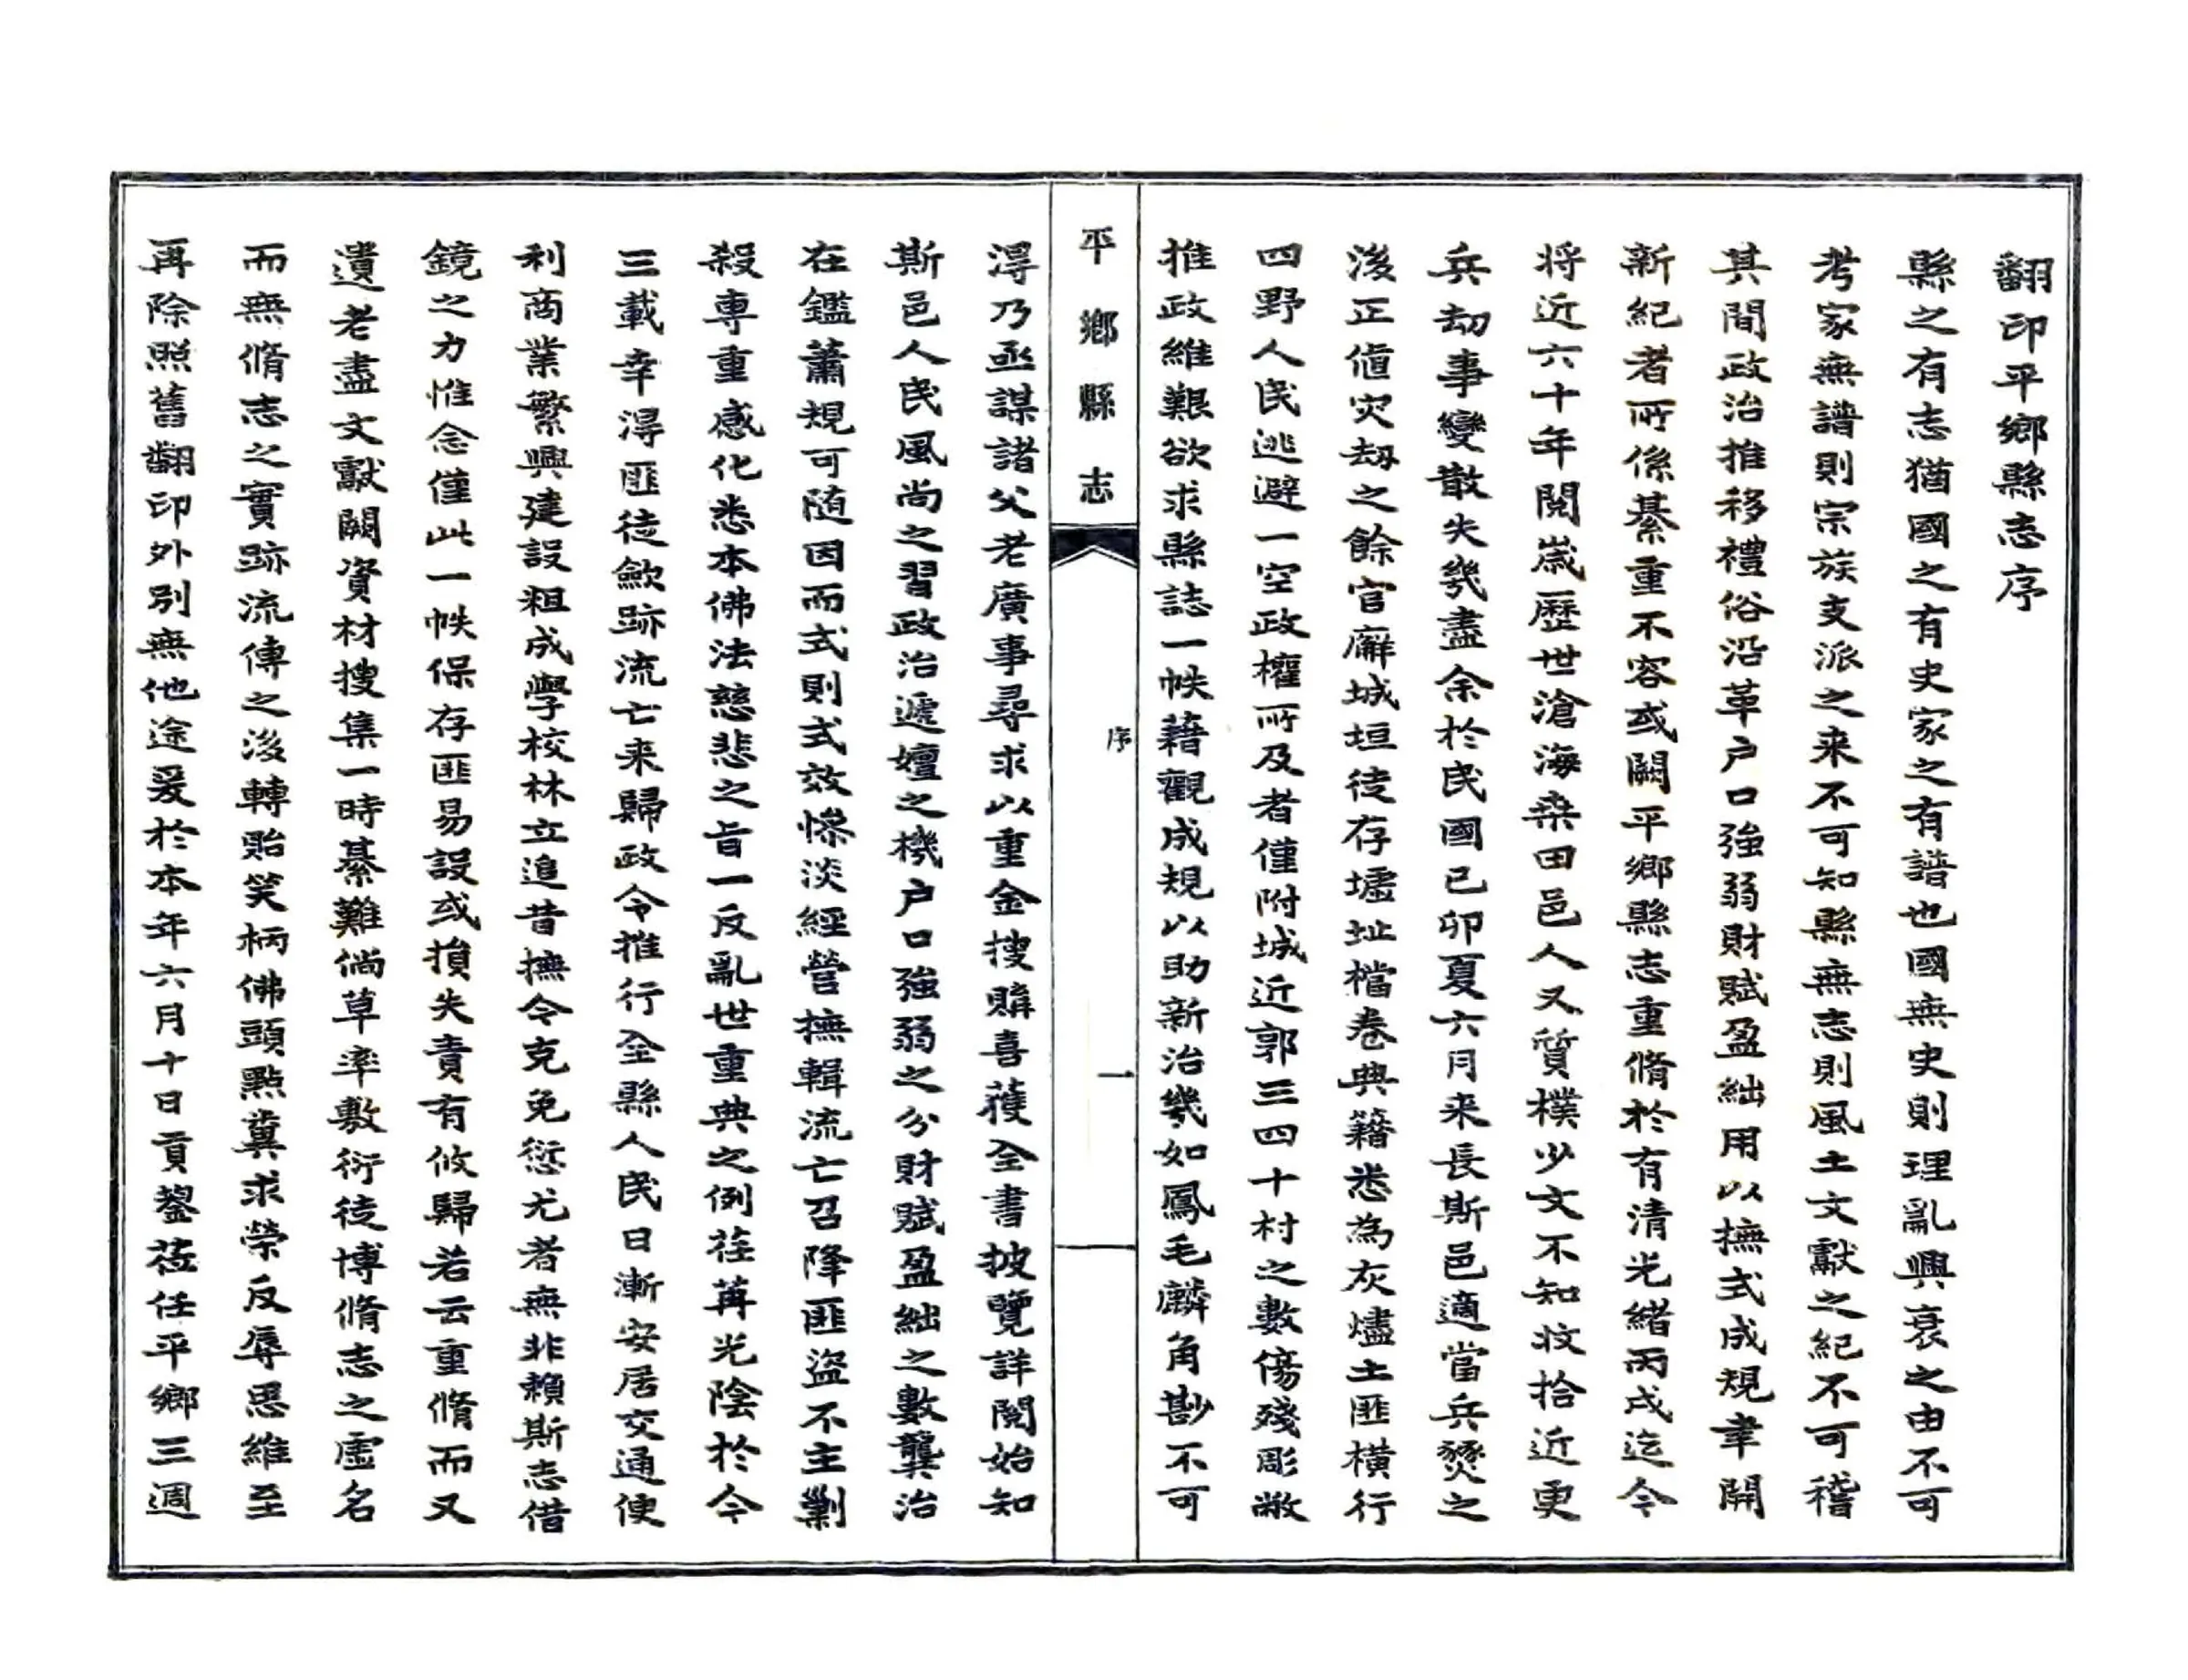 翻印平鄉縣志序
縣之有志猶國之有史家之有譜也國無史則理亂興衰之由不可
考家無譜則宗族支派之来不可知縣無志則風土文獻之紀不可稽
其間政治推移禮俗沿革户口強弱財賦盈絀用以撫式成規聿開
新紀者所係綦重不容或闕平鄉縣志重脩於有清光緒丙戌迄今
将近六十年閱嵗歷世滄海桑田邑人又質樸少文不知收拾近更
兵刼事變散失幾盡余於民國已卯夏六月来長斯邑適當兵燹之
後正值灾刼之餘官廨城垣徒存墟址檔卷典籍悉為灰燼土匪橫行
四野人民逃避一空政權所及者僅附城近郭三四十村之數傷殘彫敝
推政維艱欲求縣誌一帙藉觀成規以助新治幾如鳳毛麟角尠不可
平鄉縣志
序
一
淂乃亟謀諸父老廣事尋求以重金搜購喜獲全書披覽詳閱始知
斯邑人民風尚之習政治遞嬗之機户口強弱之分財賦盈絀之數龔治
在鑑蕭規可随因而式則式效慘淡經營撫輯流亡召降匪盜不主剿
殺專重感化悉本佛法慈悲之旨一反亂世重典之例荏苒光陰於今
三載幸淂匪徒歛跡流亡来歸政令推行全縣人民日漸安居交通便
利商業繁興建設粗成學校林立追昔撫今克免愆尤者無非賴斯志借
鏡之力惟念僅此一帙保存匪易設或損失責有攸歸若云重脩而又
遺老盡文獻闕資材搜集一時綦難倘草率敷衍徒博脩志之虛名
而無脩志之實跡流傳之後轉貽笑柄佛頭點糞求榮反辱思維至
再除照舊翻印外別無他途爰於本年六月十日貢鋆莅任平鄉三週